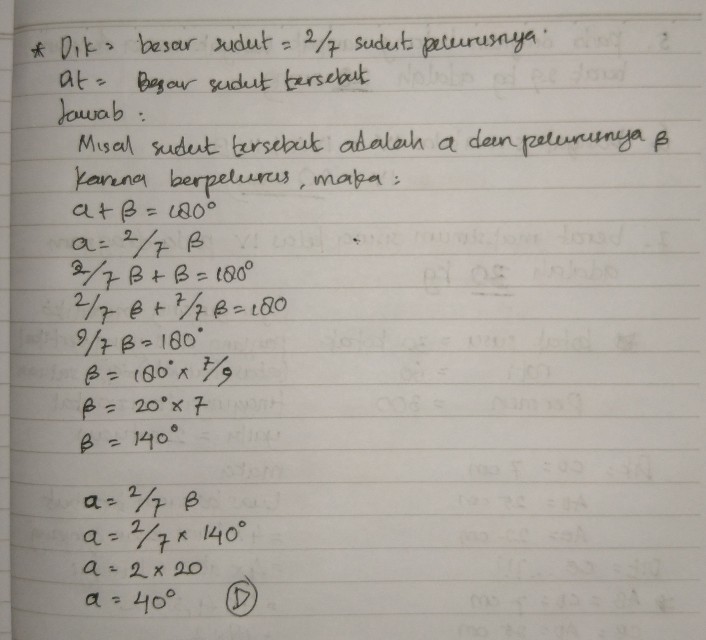 * Dik = besar sudut = 2/7 sudut pelurusnya.
Dit = Besar sudut tersebut
Jawab :
Misal sudut tersebut adalah a dan pelurusnya β
Karena berpelurus, maka :
a + β = 180°
a = 2/7 β
2/7 β + β = 180°
2/7 β + 7/7 β = 180
9/7 β = 180°
β = 180° × 7/9
β = 20° × 7
β = 140°
a = 2/7 β
a = 2/7 × 140°
a = 2 × 20
a = 40° D